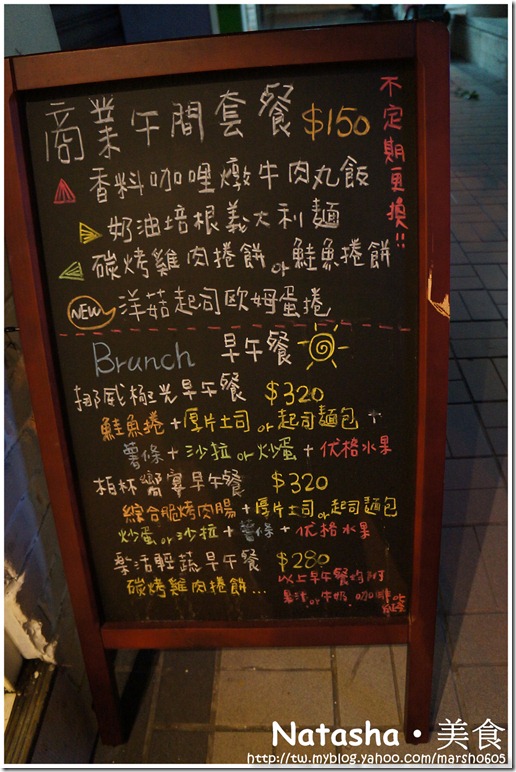 商業午間套餐 $150
不定期更換!!
香料咖哩燉牛肉丸飯
奶油培根義大利麵
碳烤雞肉捲餅 or 鮭魚捲餅
NEW 洋菇起司歐姆蛋捲
Brunch 早午餐
挪威極光早午餐 $320
鮭魚捲+厚片土司 or 起司麵包+
薯條+沙拉 or 炒蛋+優格水果
柏林饗宴早午餐 $320
綜合脆烤肉腸+厚片土司 or 起司麵包
炒蛋 or 沙拉+薯條+優格水果
樂活輕蔬早午餐 $280
碳烤雞肉捲餅...
以上早午餐均附
果汁 or 牛奶 咖啡 or
Natasha・美食
http://tw.myblog.yahoo.com/marsh0605